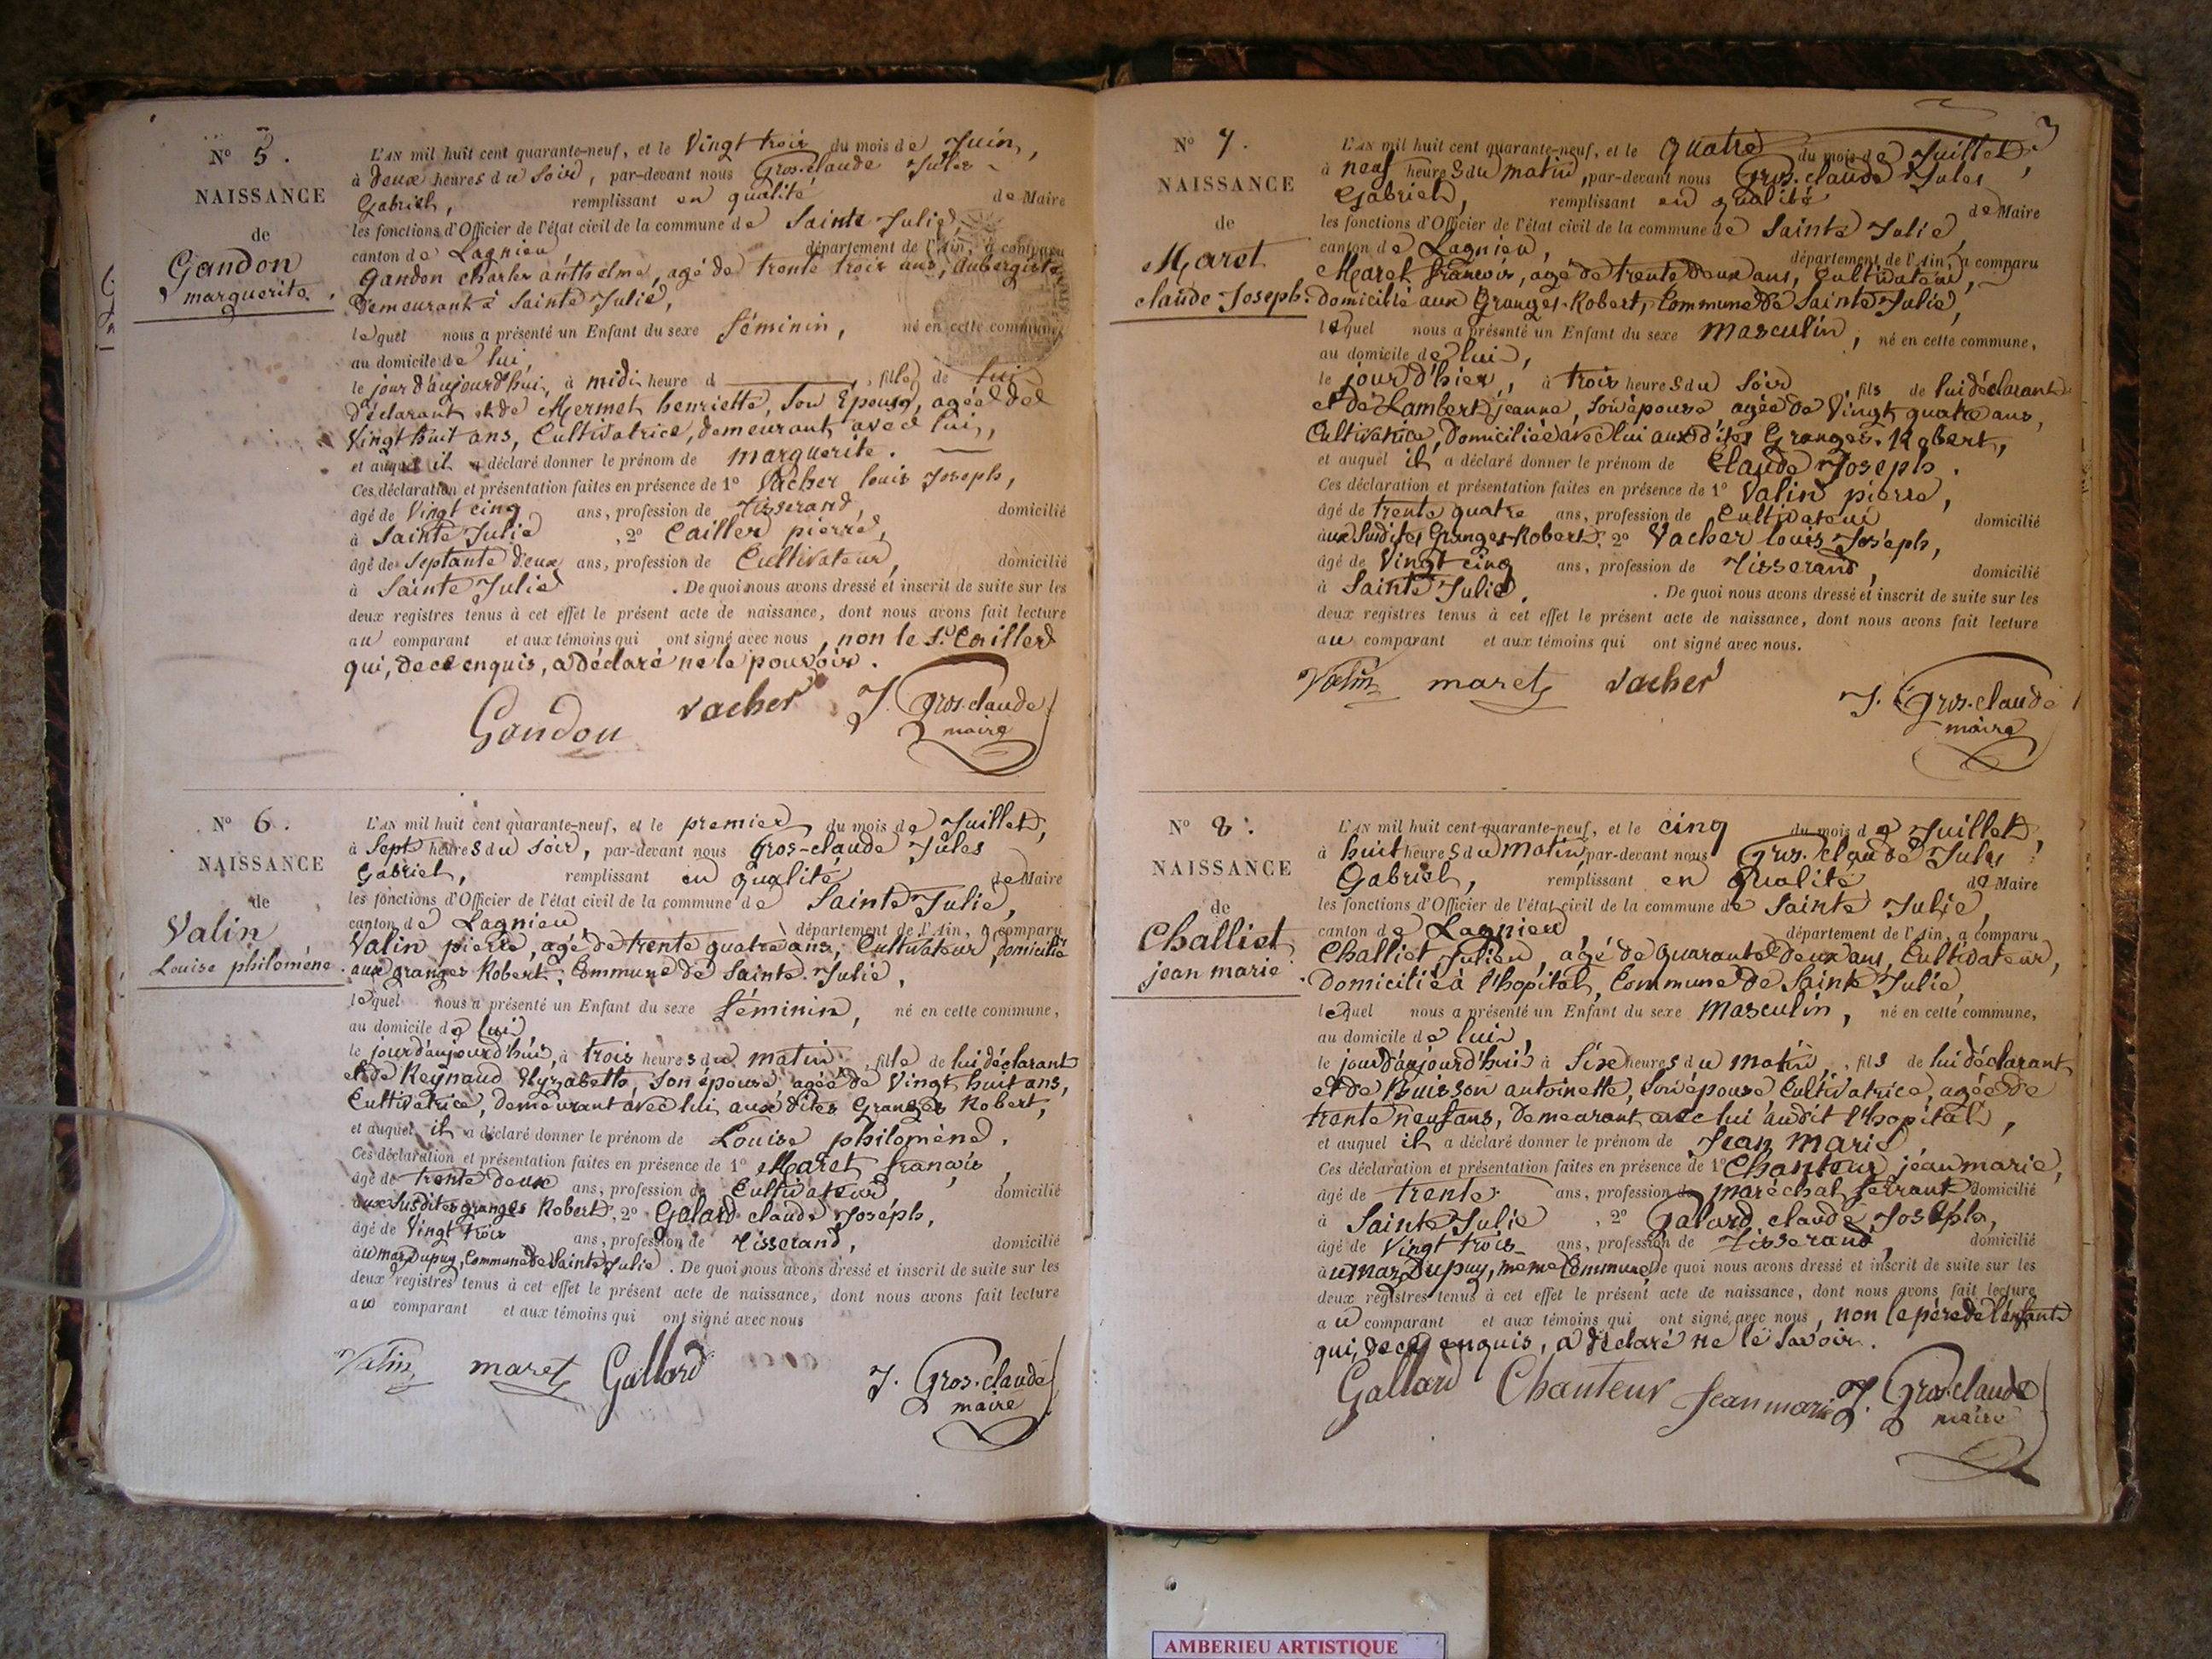 N° 5.
NAISSANCE
de
Gandon
marguerite.
L'AN mil huit cent quarante-neuf, et le Vingt trois du mois de Juin,
à deux heures du Soir, par-devant nous Gros-claude Jules
Gabriel, remplissant en qualité de Maire
les fonctions d'Officier de l'état civil de la commune de Sainte Julie,
canton de Lagnieu, département de l'Ain, a comparu
Gandon charles anthelme, agé de trente trois ans, aubergiste
Demeurant à Sainte Julie,
lequel nous a présenté un Enfant du sexe féminin, né en cette commune,
au domicile de lui,
le jour d'aujourd'hui, à midi heure d , fille de lui
déclarant et de Mermet henriette, Son Epouse, agée de
Vingt huit ans, Cultivatrice, demeurant avec lui,
et auquel il a déclaré donner le prénom de marguerite.
Ces déclaration et présentation faites en présence de 1° Vacher louis Joseph,
âgé de Vingt cinq ans, profession de Tisserand, domicilié
à Sainte Julie , 2° Cailler pierre,
âgé de Septante deux ans, profession de Cultivateur, domicilié
à Sainte Julie . De quoi nous avons dressé et inscrit de suite sur les
deux registres tenus à cet effet le présent acte de naissance, dont nous avons fait lecture
au comparant et aux témoins qui ont signé avec nous, non le Sr Cailler
qui, de ce enquis, a déclaré ne le pouvoir.
Gandon vacher J. Gros-claude
maire
N° 6.
NAISSANCE
de
Valin
Louise philomène.
L'AN mil huit cent quarante-neuf, et le premier du mois de Juillet,
à Sept heures du Soir, par-devant nous Gros-claude Jules
Gabriel, remplissant en qualité de Maire
les fonctions d'Officier de l'état civil de la commune de Sainte Julie,
canton de Lagnieu, département de l'Ain, a comparu
Valin pierre, agé de trente quatre ans, Cultivateur, domicilié
aux granges Robert, Commune de Sainte Julie,
lequel nous a présenté un Enfant du sexe féminin, né en cette commune,
au domicile de lui,
le jour d'aujourd'hui, à trois heures du matin, fille de lui déclarant
et de Reynaud Elyzabette, Son épouse agée de Vingt huit ans,
Cultivatrice, demeurant avec lui aux dites Granges Robert,
et auquel il a déclaré donner le prénom de Louise philomène.
Ces déclaration et présentation faites en présence de 1° Maret françois,
âgé de trente deux ans, profession de Cultivateur, domicilié
aux Susdites granges Robert, 2° Galard claude Joseph,
âgé de Vingt trois ans, profession de Tisserand, domicilié
au maz Dupuy, Commune de Sainte Julie. De quoi nous avons dressé et inscrit de suite sur les
deux registres tenus à cet effet le présent acte de naissance, dont nous avons fait lecture
au comparant et aux témoins qui ont signé avec nous
Valin maret Gallard J. Gros-claude
maire
3
N° 7.
NAISSANCE
de
Maret
claude Joseph.
L'AN mil huit cent quarante-neuf, et le quatre du mois de Juillet,
à neuf heures du matin, par-devant nous Gros-claude Jules
Gabriel, remplissant en qualité de Maire
les fonctions d'Officier de l'état civil de la commune de Sainte Julie,
canton de Lagnieu, département de l'Ain, a comparu
Maret francois, agé de trente deux ans, Cultivateur,
domicilié aux Granges-Robert, Commune de Sainte Julie,
lequel nous a présenté un Enfant du sexe masculin, né en cette commune,
au domicile de lui,
le jour d'hier, à trois heures du Soir , fils de lui déclarant
et de Lambert jeanne, Son épouse agée de Vingt quatre ans,
Cultivatrice, Domiciliée avec lui aux dites Granges-Robert,
et auquel il a déclaré donner le prénom de Claude Joseph.
Ces déclaration et présentation faites en présence de 1° Valin pierre,
âgé de trente quatre ans, profession de Cultivateur domicilié
aux Susdites Granges-Robert, 2° Vacher louis Joseph,
âgé de Vingt cinq ans, profession de Tisserand, domicilié
à Sainte Julie. . De quoi nous avons dressé et inscrit de suite sur les
deux registres tenus à cet effet le présent acte de naissance, dont nous avons fait lecture
au comparant et aux témoins qui ont signé avec nous.
Valin maret vacher J. Gros-claude
maire
N° 8.
NAISSANCE
de
Challiet
jean marie.
L'AN mil huit cent quarante-neuf, et le cinq du mois de Juillet,
à huit heures du matin, par-devant nous Gros-claude Jules
Gabriel, remplissant en qualité de Maire
les fonctions d'Officier de l'état civil de la commune de Sainte Julie,
canton de Lagnieu, département de l'Ain, a comparu
Challiet Julien, agé de quarante deux ans, Cultivateur,
Domicilié à l'hopital, Commune de Sainte Julie,
lequel nous a présenté un Enfant du sexe masculin, né en cette commune,
au domicile de lui,
le jour d'aujourd'hui à Six heures du matin, fils de lui déclarant
et de Buisson antoinette, Son épouse, Cultivatrice, agée de
trente neuf ans, Demeurant avec lui audit l'hopital,
et auquel il a déclaré donner le prénom de Jean Marie
Ces déclaration et présentation faites en présence de 1° Chanteur jean marie,
âgé de trente ans, profession de maréchal ferrant domicilié
à Sainte Julie , 2° Galard claude Joseph,
âgé de Vingt trois ans, profession de Tisserand, domicilié
au maz Dupuy, meme Commune. De quoi nous avons dressé et inscrit de suite sur les
deux registres tenus à cet effet le présent acte de naissance, dont nous avons fait lecture
au comparant et aux témoins qui ont signé avec nous, non le père de l'enfant
qui, de ce enquis, a déclaré ne le Savoir.
Gallard Chanteur Jean marie J. Gros-claude
maire
AMBERIEU ARTISTIQUE